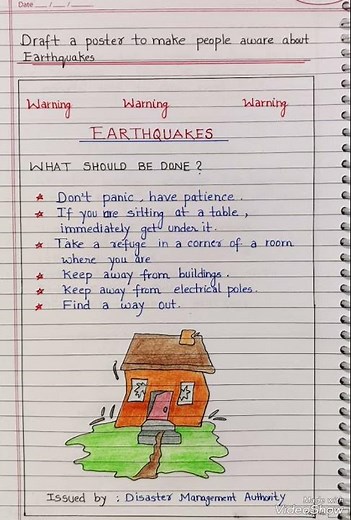 Date __/__/__
Draft a poster to make people aware about
Earthquakes
Warning Warning Warning
EARTHQUAKES
WHAT SHOULD BE DONE?
★ Don't panic, have patience.
★ If you are sitting at a table,
immediately get under it.
★ Take a refuge in a corner of a room
where you are
★ Keep away from buildings.
★ Keep away from electrical poles.
★ Find a way out.
Issued by : Disaster Management Authority
Made with
VideoShow